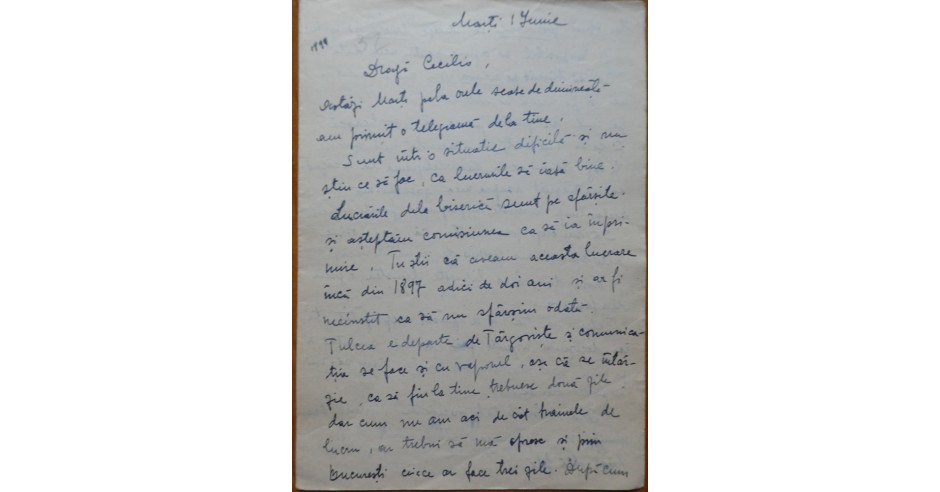 Marți 1 Iunie
1899 51
Dragă Cecilio,
Astăzi Marți pela orele șease de dimineață
am primit o telegramă dela tine.
Sunt într'o situație dificilă și nu
știu ce să fac, ca lucrurile să iasă bine.
Lucrările dela biserică sunt pe sfârșite
și așteptăm comisiunea ca să ia în pri-
mire. Tu știi că aveam aceasta lucrare
încă din 1897 adică de doi ani și ar fi
necinstit ca să nu sfârșim odată.
Tulcea e departe de Târgoviște și comunica-
ția se face și cu vaporul, așa că se întâr-
zie, ca să fiu la tine, trebuesc două zile.
dar cum nu am aci de cât hainele de
lucru, ar trebui să mă opresc și prin
București ceiace ar face trei zile. După cum